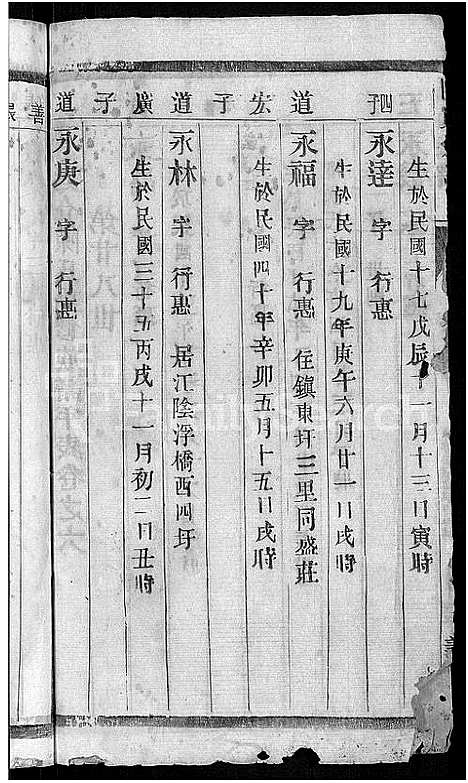 生於民國十七戊辰十一月十三日寅時
四子
永達 字 行惠
生於民國十九年庚午六月廿一日戌時
道
永福 字 行惠 住鎮東圩三里同盛莊
宏
生於民國四十年辛卯五月十五日戌時
子
道
永林 字 行惠 居江陰浮橋西四圩
廣
生於民國三十五丙戌十一月初二日丑時
子
道
永庚 字 行惠
善